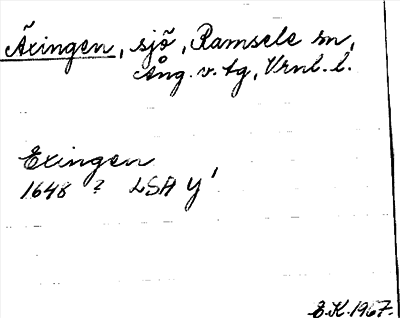 Äxingen, sjö, Ramsele sn,
Ång. v. tg, Vrnl. l.
Exingen
1648 ? LSA Y'
E.K. 1967.